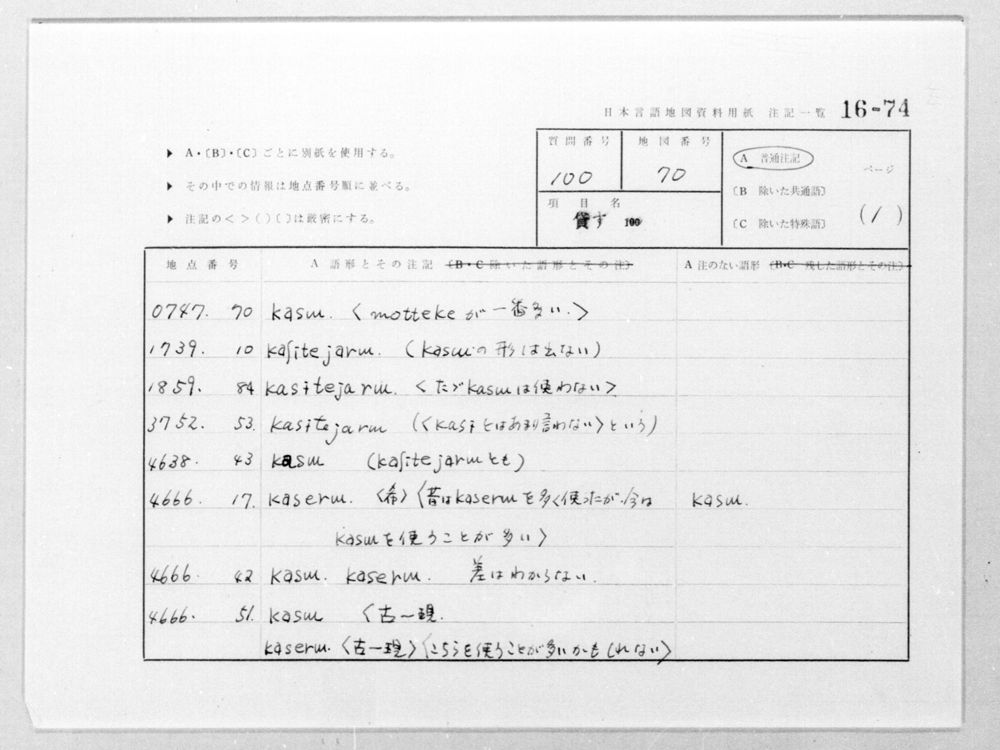 日本言語地図資料用紙 注記一覧 16-74
▶ A・〔B〕・〔C〕ごとに別紙を使用する。
▶ その中での情報は地点番号順に並べる。
▶ 注記の< >( )〔 〕は厳密にする。
質問番号 100
地図番号 70
項目名 貸す 100
A 普通注記
〔B 除いた共通語〕
〔C 除いた特殊語〕
ページ
(1)
地点番号 A 語形とその注記 〔B・C 除いた語形とその注〕 A 注のない語形 〔B・C 残した語形とその注〕
0747. 70 kasɯ. <mottekeが一番多い.>
1739. 10 kaʃitejarɯ. (kasɯの形は出ない)
1859. 84 kasitejarɯ. <たゞkasɯは使わない>
3752. 53. kasitejarɯ (<kasïとはあまり言わない>という)
4638. 43 kasɯ (kaʃitejarɯとも)
4666. 17. kaserɯ. <希><昔はkaserɯを多く使ったが.今は kasɯ.
kasɯを使うことが多い>
4666. 42 kasɯ. kaserɯ. 差はわからない.
4666. 51. kasɯ <古〜現.
kaserɯ. <古〜現><こちらを使うことが多いかもしれない>